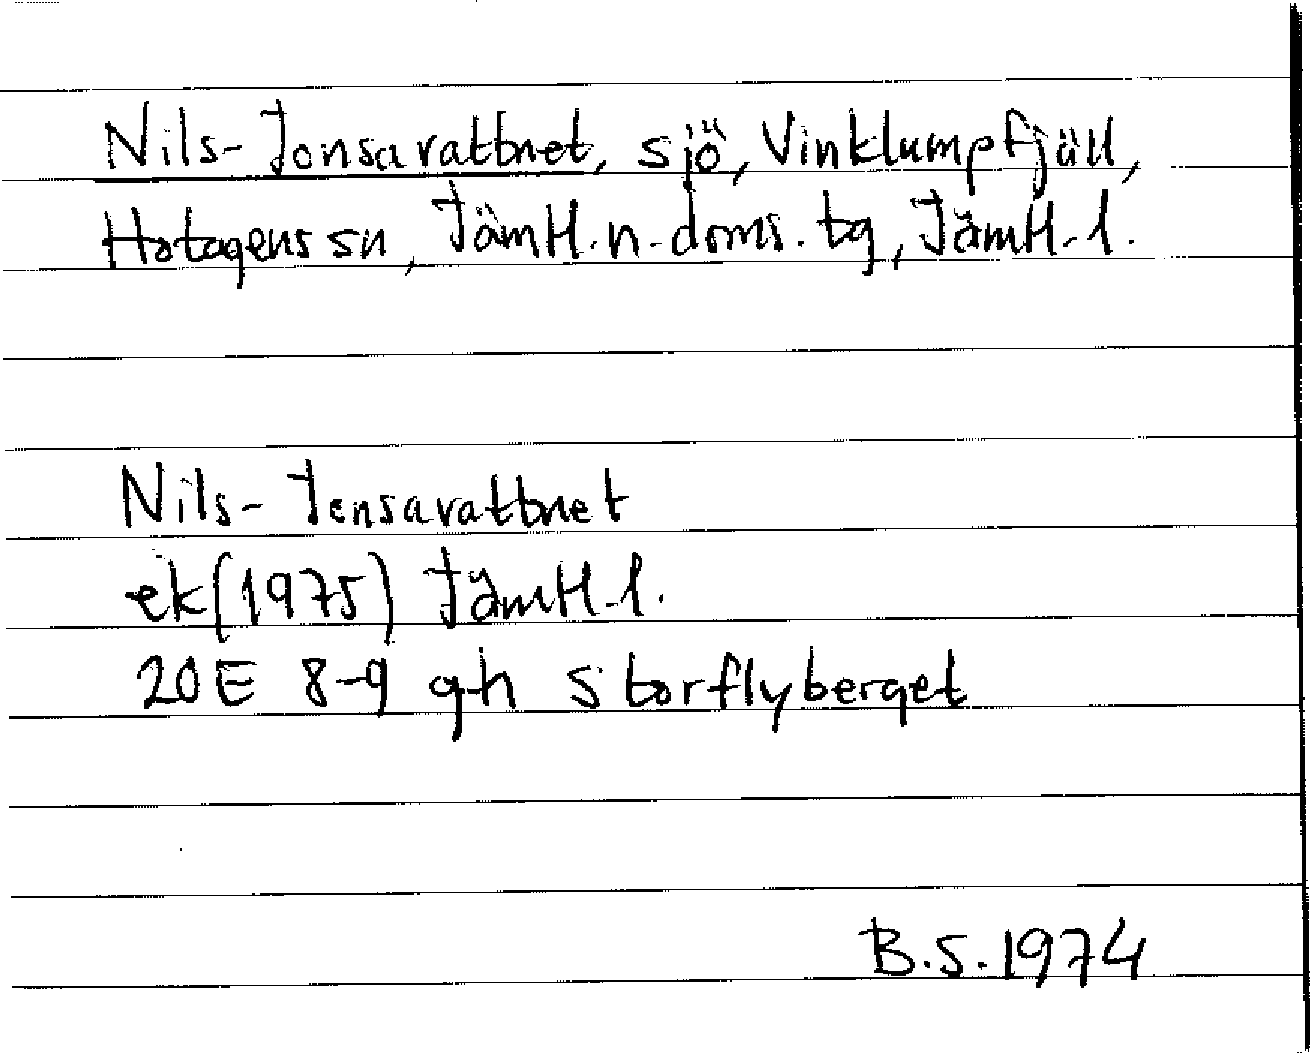 Nils-Jonsavattnet, sjö, Vinklumpfjäll,
Hotagens sn, Jämtl. n. doms. tg, Jämtl. l.
Nils-Jonsavattnet
ek (1975) Jämtl. l.
20E 8-9 gh Storflyberget
B.S. 1974